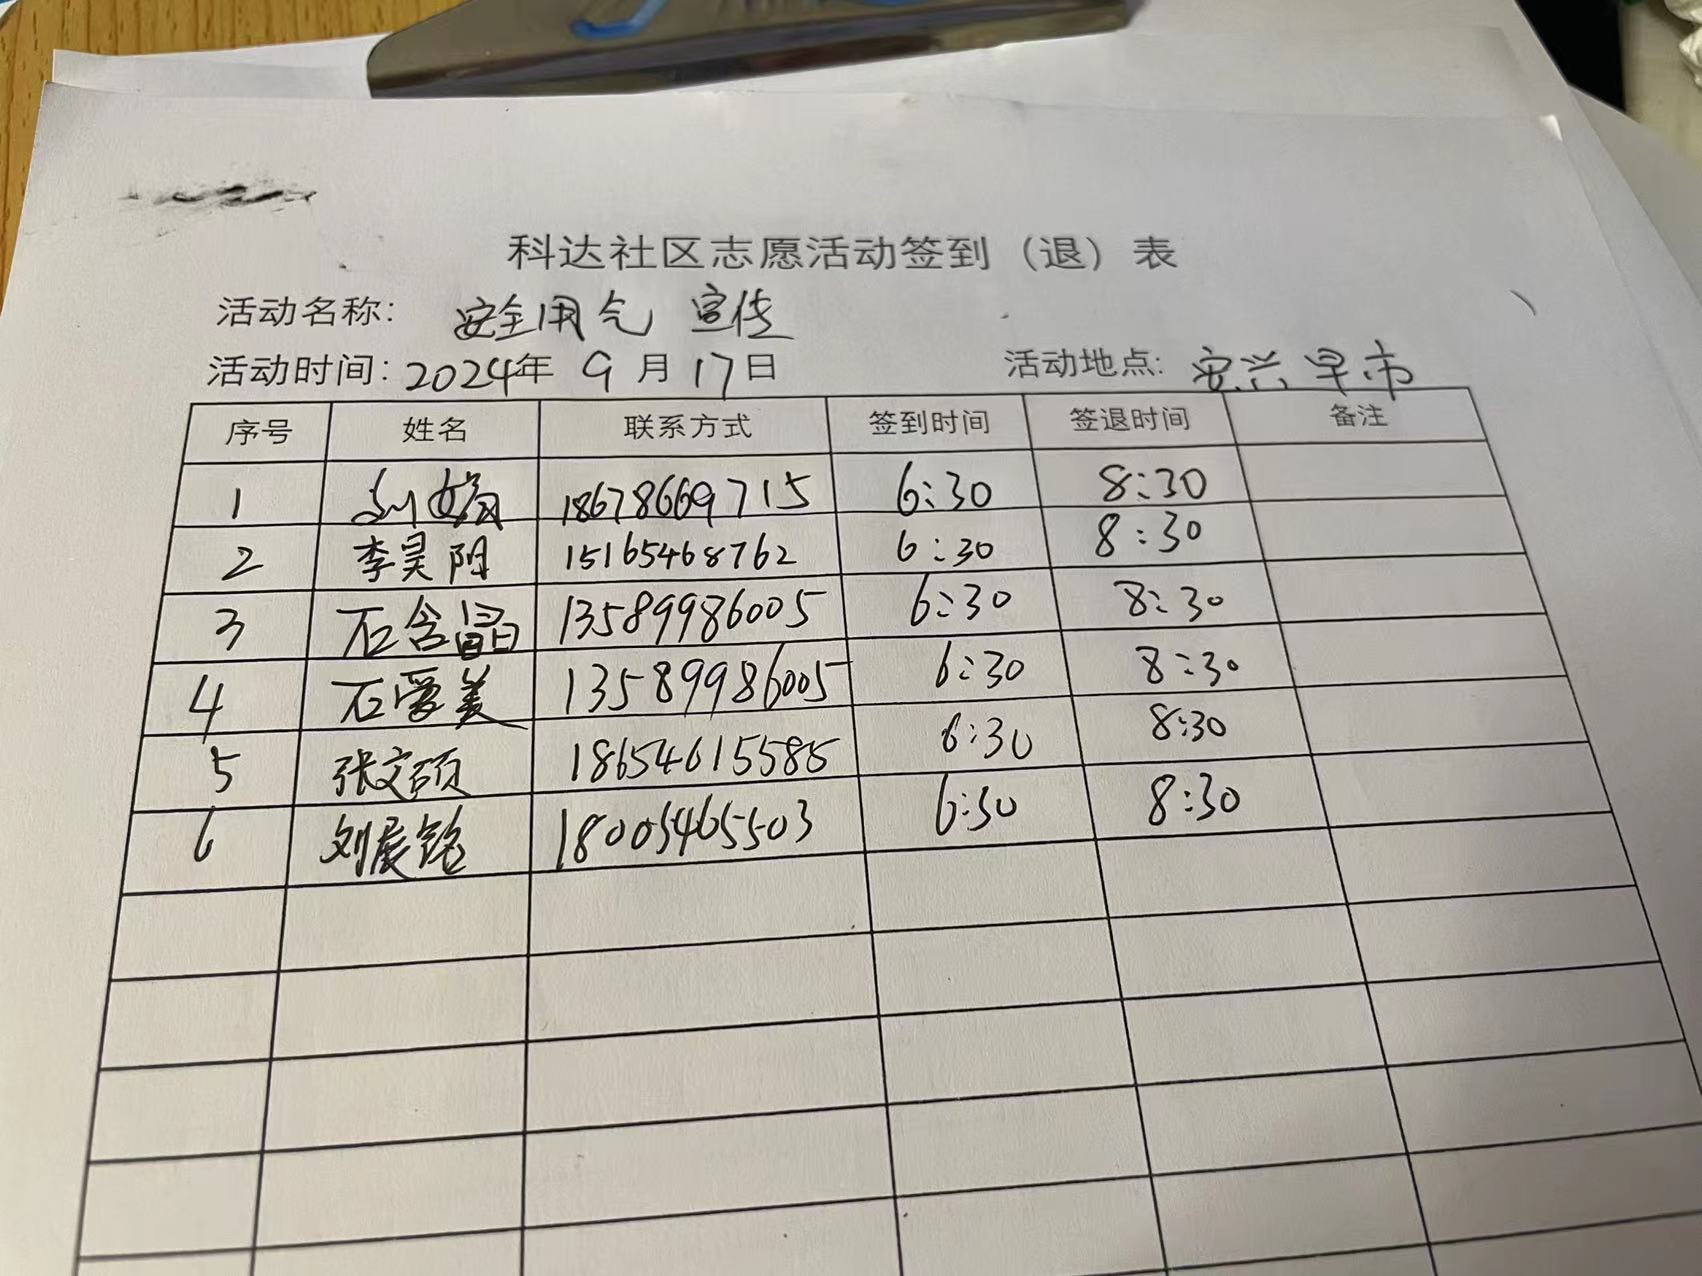 科达社区志愿活动签到（退）表
活动名称： 安全用气 宣传
活动时间：2024年 9月17日 活动地点：安兴早市
序号 姓名 联系方式 签到时间 签退时间 备注
1 刘娟 18678669715 6:30 8:30
2 李昊阳 15165468762 6:30 8:30
3 石含晶 13589986005 6:30 8:30
4 石爱美 13589986005 6:30 8:30
5 张文硕 18654615585 6:30 8:30
6 刘晨铭 18005465503 6:30 8:30